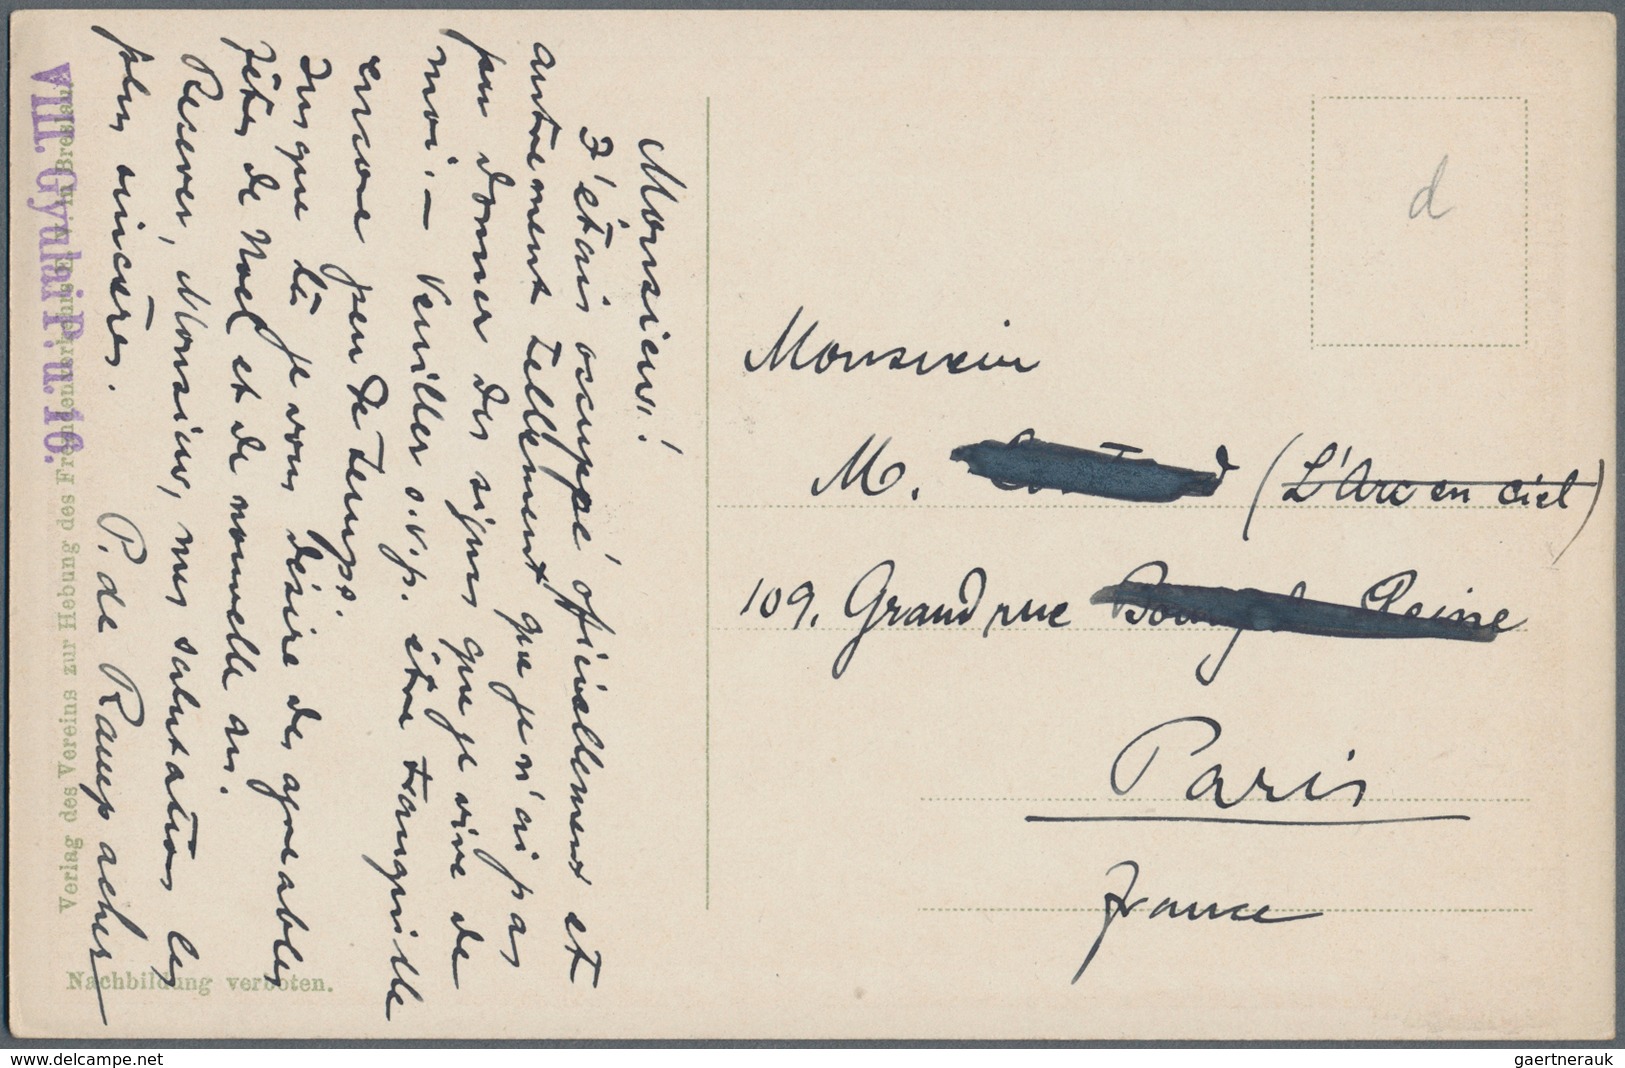 Monsieur!
J'étais occupé officiellement et
autrement tellement que je n'ai pas
pu donner des signes que je vive de
moi. — Veuiller s.v.p. être tranquille
encore peu de temps.
Jusque là je vous désire des agreables
fêtes de Noel et de nouvelle an.
Recever, Monsieur, mes salutations les
plus sincères.
P. de Rampacher
VIII. Gyulai P. u. 16.
Verlag des Vereins zur Hebung des Fremdenverkehrs E. V. in Breslau
Nachbildung verboten.
d
Monsieur
M. (L'Arc en ciel)
109. Grand rue Reine
Paris
France
delcampe.net
gaertnerauk